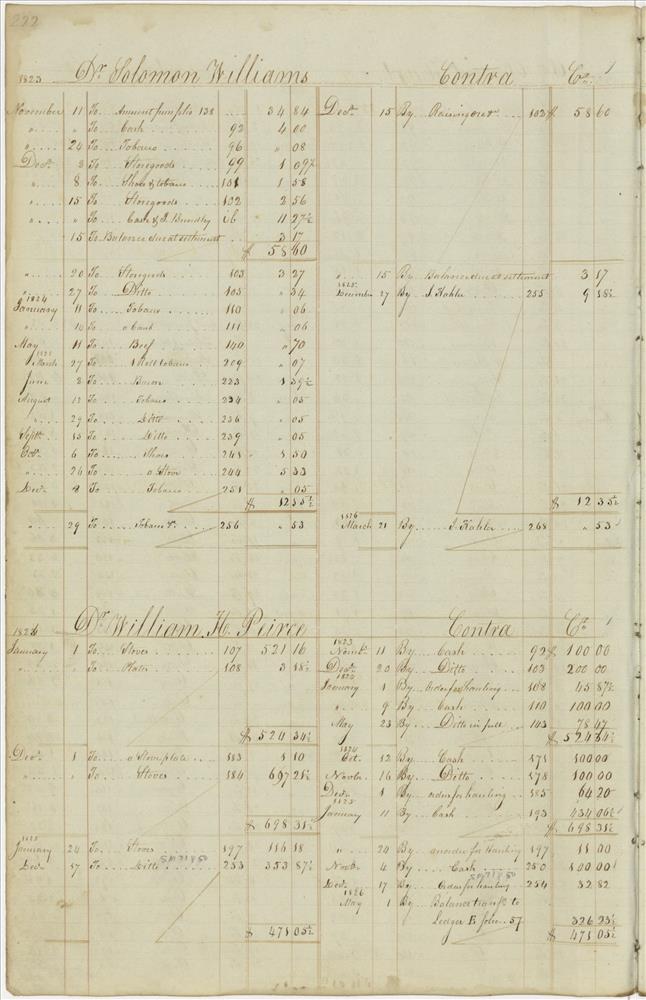 222
1823 Dr. Solomon Williams Contra Cr.
November 11 To Amount from folio 138 34 84
" " To Cash 92 4 00
" 24 To Tobacco 96 " 08
Decr. 3 To Storegoods 99 1 09½
" 8 To Shoes & tobacco 101 1 58
" 15 To Storegoods 102 2 56
" " To Cash & J. Brindley ib 11 27½
15 To Balance due at settlement 3 17
$ 58 60
Decr. 15 By 102 $ 58 60
" 20 To Storegoods 103 3 27
" 27 To Ditto 105 " 34
1824
January 11 To Tobacco 110 " 06
" 14 To a Comb 111 " 06
May 11 To Beef 140 " 70
1825
March 27 To 1 Roll tobacco 209 " 07
June 8 To Bacon 223 1 39½
August 12 To Tobacco 234 " 05
" 29 To Ditto 236 " 05
Septr. 13 To Ditto 239 " 05
Octr. 6 To Shoes 241 1 50
" 26 To a Stove 244 5 33
Decr. 8 To Tobacco 251 " 05
$ 12 35½
" 15 By Balance due at settlement 3 17
1825
December 27 By J. Kahler 255 9 18½
$ 12 35½
" 29 To Tobacco &c. 256 " 53
1826
March 21 By J. Kahler 268 " 53
Dr. William H. Peirce Contra Cr.
1824
January 1 To Stoves 107 521 16
" " To Plates 108 3 18½
$ 524 34½
1823
Novembr. 11 By Cash 92 $ 100 00
Decr. 20 By Ditto 103 200 00
1824
January 1 By order for hauling 108 45 87½
" 9 By Cash 110 100 00
May 23 By Ditto in full 143 78 47
$ 524 34½
Decr. 1 To a Stove plate 183 1 10
" " To Stoves 184 697 21½
$ 698 31½
1824
Oct. 12 By Cash 171 100 00
Novbr. 16 By Ditto 178 100 00
Decr. 1 By order for hauling 185 64 20
1825
January 11 By Cash 193 434 06½
$ 698 31½
1825
January 24 To Stoves 197 116 18
Decr. 17 To Ditto 253 353 87½
$ 471 05½
" 24 By an order for Hauling 197 11 00
Novbr. 4 By Cash 250 100 00
Decr. 17 By Order for hauling 254 32 82
1826
May 1 By Balance transfd. to
Ledger E folio 57 326 23½
$ 471 05½